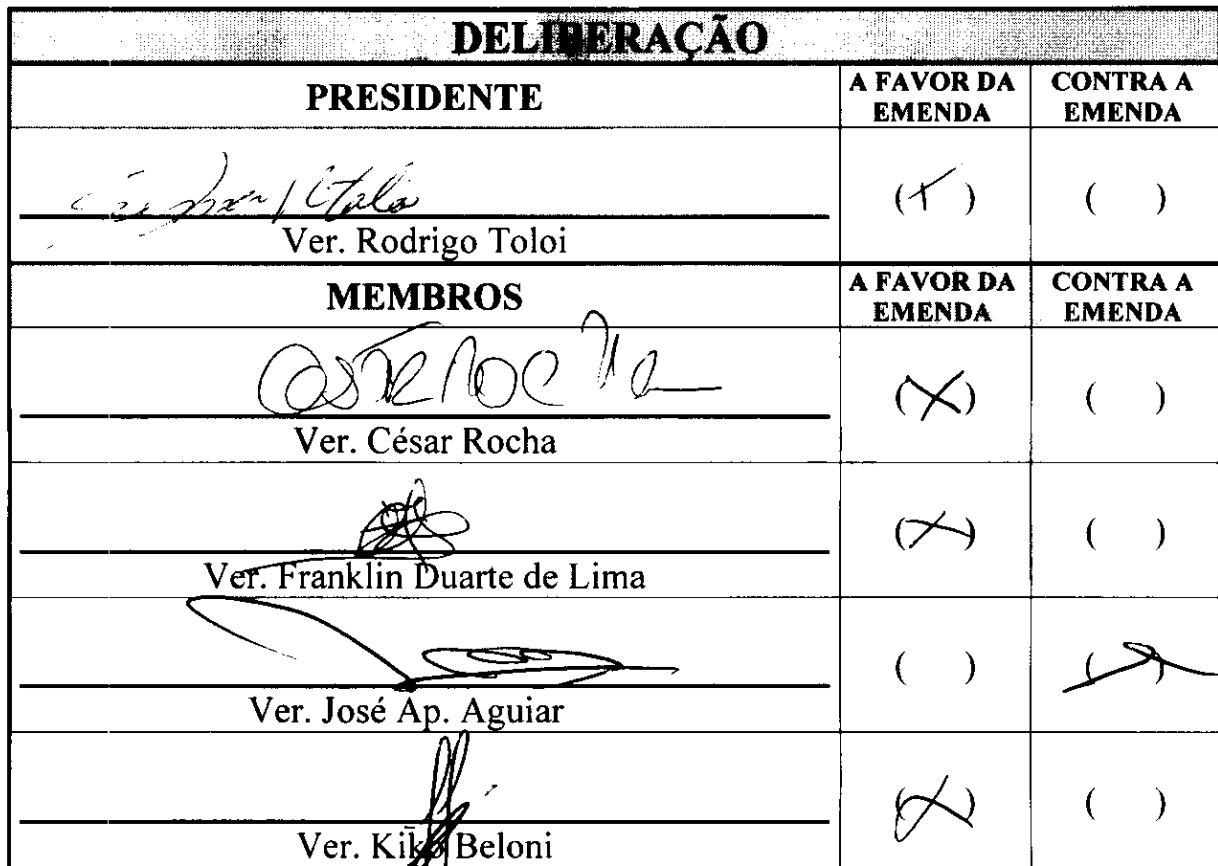 DELIBERAÇÃO
PRESIDENTE
A FAVOR DA EMENDA
CONTRA A EMENDA
Ver. Rodrigo Toloi
( X )
( )
MEMBROS
A FAVOR DA EMENDA
CONTRA A EMENDA
Ver. César Rocha
(X)
( )
Ver. Franklin Duarte de Lima
(X)
( )
Ver. José Ap. Aguiar
( )
(X)
Ver. Kiko Beloni
(X)
( )